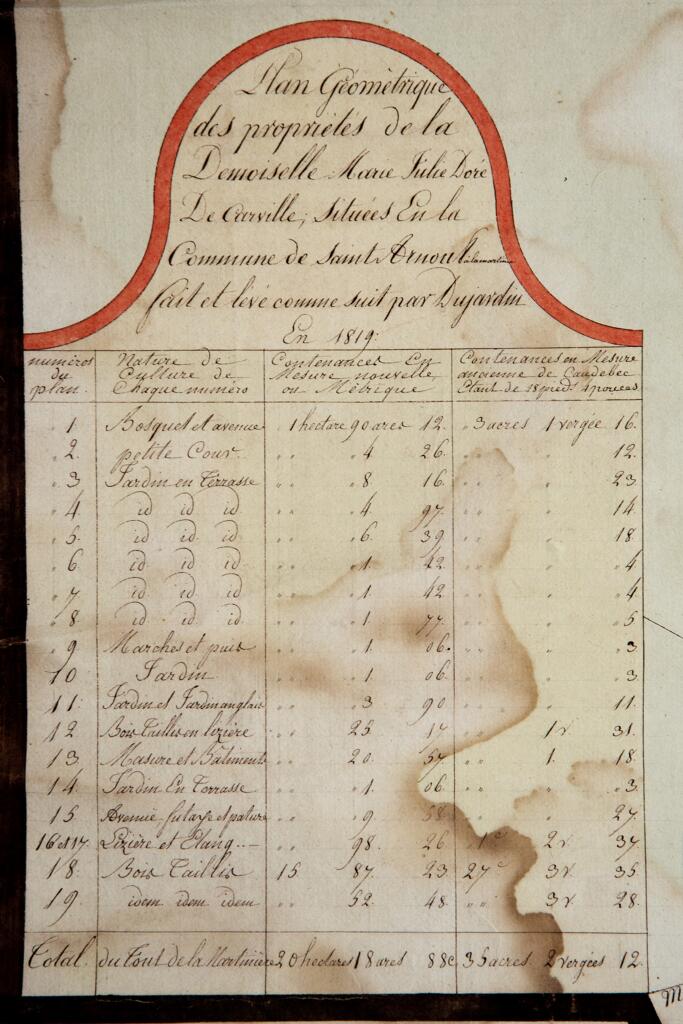 Plan Géométrique
des propriétés de la
Demoiselle Marie Julie Doré
De Carville, Situées En la
Commune de Saint Arnoult
fait et levé comme suit par Dujardin
En 1819:
numéros du plan. Nature de Culture de Chaque numéro Contenances En Mesure nouvelle ou Métrique Contenances en Mesure ancienne de Caudebec Etant de 18 pieds 4 pouces
1 Bosquet et avenue 1 hectare 90 ares 12. " 3 acres 1 vergée 16.
2. petite Cour. " " " 4 26. " " " 12.
3 Jardin en Terrasse " " " 8 16. " " " 23
4. id id id " " " 4. 97. " " " 14
5. id id id " " " 6. 39 " " " 18
6 id id id " " " 1. 42 " " " 4
7 id id id " " " 1. 42 " " " 4
8 id id id " " " 1 77. " " " 5
9 Marches et puis " " " 1. 06. " " " 3
10 Jardin " " " 1 06. " " " 3
11: Jardin et Jardin anglais " " 3 90 " " " 11.
12 Bois Taillis en lizière " " 25 17 " " 1v. 31.
13 Masure et Bâtiments " " 20. 57. " " 1. 18.
14 Jardin En Terrasse " " " 1. 06 " " " 3.
15 Avenue futaye et pature " " " 9. 58 " " " 27.
16 et 17. Lizière et Etang " " " 98. 26 1c 2v. 37
18. Bois Taillis 15 87. 23 27c 3v. 35
19. idem idem idem " " 52. 48. " " 3v. 28.
Total. du Tout de la Martinière 20 hectares 18 ares 88c 35 acres 2 vergées 12.